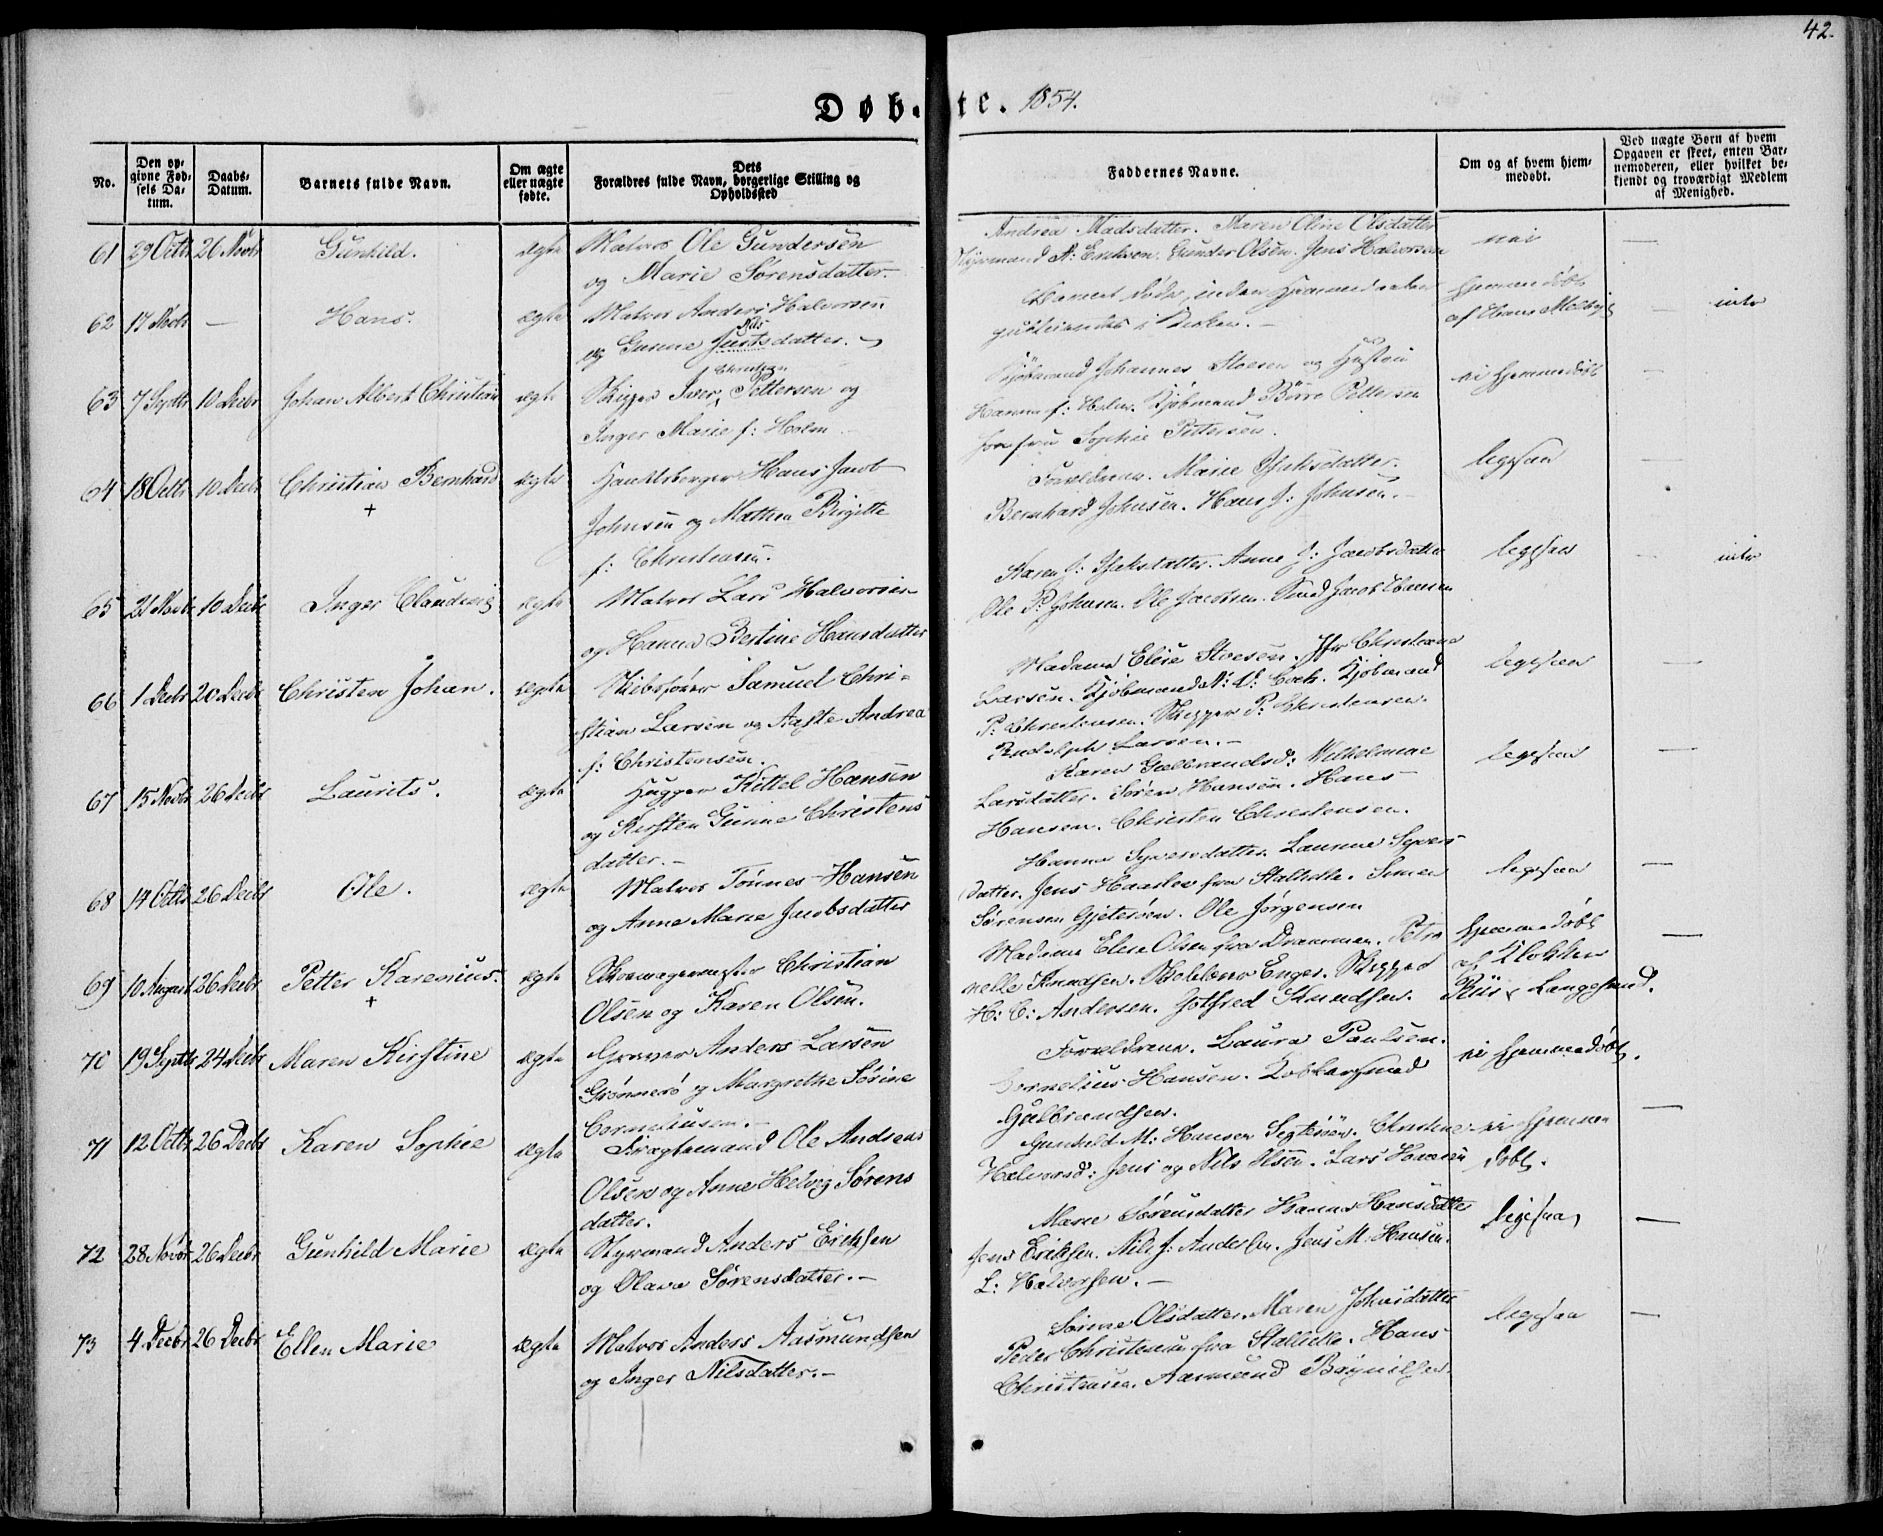 42.
Døbte. 1854.
No.
Den opgivne Fødsels Datum.
Daabs-Datum.
Barnets fulde Navn.
Om ægte eller uægte fødte.
Dets Forældres fulde Navn, borgerlige Stilling og Opholdssted
Faddernes Navne.
Om og af hvem hjemmedøbt.
Ved uægte Børn af hvem Opgaven er skeet, enten Barnemoderen, eller hvilket bekjendt og troværdigt Medlem af Menighed.
61 29 Octbr 26 Novbr Gunhild. ægte Matros Ole Gundersen
og Marie Sørensdatter.
Andrea Madsdatter. Maren Oline Olsdatter nei —
Styrmand A: Eriksen. Gunder Olsen. Jens Halvorsen
62 17 Novbr — Hans. ægte Matros Anders Halvorsen
Nils
og Gunne Juststdatter. —
Barnet døde inden hjemmedøbt
i Kirken. — af Hans Melbye intr
63 7 Septbr 10 Decbr Johan Albert Christian ægte Skipper Iver Christian Pettersen og
Inger Marie f: Holm
Kjøbmand Johannes Stoesen og Hustru ei hjemmedøbt —
Hanna f: Holm. Kjøbmand Børre Pettersen
Jomfru Sophie Pettersen.
64 18 Octbr 10 Decbr Christian Bernhard ægte Handelsborger Hans Jacob
+
Johnsen og Mathea Birgitte
f: Christensen.
Forældrene. Marie Isaksdatter. ligesaa —
Bernhard Johnsen. Hans J: Johnsen. —
65 21 Novbr 10 Decbr Inger Claudine ægte Matros Lars Halvorsen
og Hanna Bertine Hansdatter
Karen J: Isaksdatter. Anne J: Jacobsdatter ligesaa — intr
Ole P: Johnsen. Ole Jacobsen. Knud Jacob Hansen
66 1 Decbr 20 Decbr Christen Johan. ægte Skibsfører Samuel Chri-
stian Larsen og Aaste Andrea
f: Christensen.
Madame Elise Stoesen. Jfr Christiane ligesaa —
Larsen. Kjøbmand N: V: Coch. Kjøbmand
P: Christensen. Skipper P: Christensen.
Rudolph Larsen. —
67 15 Novbr 26 Decbr Laurits. ægte Hugger Kittel Hansen
og Kirsten Gurine Christens
datter. —
Karen Gulbrandsd: Wilhelmine ligesaa —
Larsdatter. Søren Hansen. Hans
Hansen. Christen Christensen.
68 14 Octbr 26 Decbr Ole. ægte Matros Tønnes Hansen
og Anne Marie Jacobsdatter
Hanna Syversdatter. Laurine Syvers ligesaa —
datter. Jens Haaslev fra Stathelle. Simen
Sørensen Gjeterøen. Ole Jørgensen
69 10 August 26 Decbr Petter Karenius. ægte Skomagermester Christian
+
Olsen og Karen Olsen.
Madame Elise Olsen fra Drammen. Petro hjemmedøbt —
nelle Knudsen. Skolelærer Enger. Skipper af Klokker
H: C: Andersen. Gotfred Knudsen. Riis i Langesund.
70 19 Septbr 24 Decbr Maren Kirstine ægte Graver Anders Larsen
Grønnerø og Margrethe Sørine
Corneliusen. —
Forældrene. Laura Paulsen. ei hjemmedøbt.
Cornelius Hansen. Kobbersmed
Gulbrandsen. —
71 12 Octbr 26 Decbr Karen Sophie ægte Fragtemand Ole Andreas
Olsen og Anne Helvig Sørens
datter.
Gunhild M: Hansen Sigterøen. Christine ei hjemme
Halvorsd: Jens og Nils Olsen. Lars Hansen døbt.
72 28 Novbr 26 Decbr Gunhild Marie ægte Styrmand Anders Eriksen
og Olava Sørensdatter. —
Maren Sørensdatter Hanna Hansdatter ligesaa —
Jens Eriksen. Nils J: Andersen. Jens M: Hansen.
L: Halvorsen. —
73 4 Decbr 26 Decbr Ellen Marie ægte Matros Anders Aasmundsen
og Inger Nilsdatter. —
Sørine Olsdatter. Maren Johnsdatter ligesaa —
Peder Christensen fra Stathelle. Hans
Christensen. Aasmund Brynilsen.